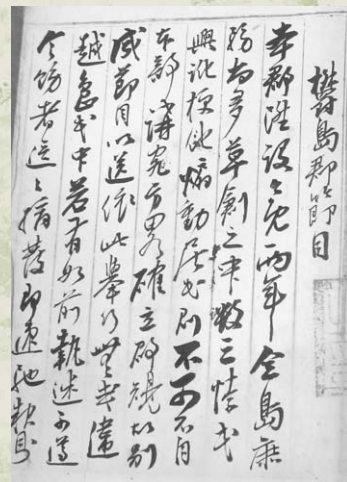 欝島郡節目
本郡陞設今既兩年全島庶
務尚多草創之中數三悖民
興訛梗化煽動居民則不可不自
本部講究方畧確立成規故別
成節目以送依此擧行無或違
越島民中若有如前執迷不遵
令飭者這々摘發即速馳報